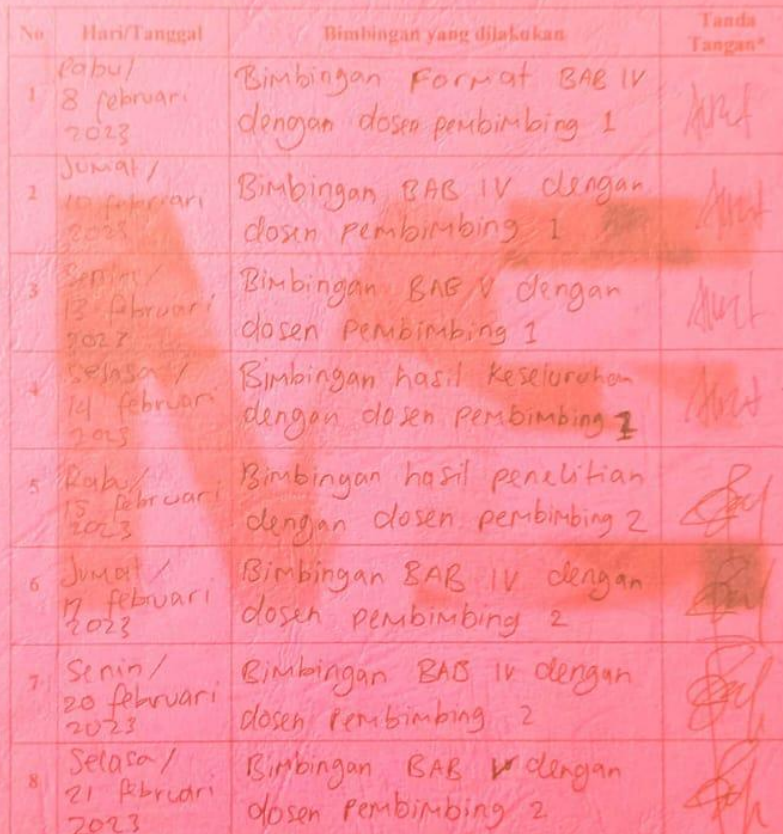 No Hari/Tanggal Bimbingan yang dilakukan Tanda Tangan*
1 Rabu/ 8 februari 2023 Bimbingan Format BAB IV
dengan dosen pembimbing 1
2 Jumat/ 10 februari 2023 Bimbingan BAB IV dengan
dosen pembimbing 1
3 Senin/ 13 februari 2023 Bimbingan BAB V dengan
dosen pembimbing 1
4 Selasa/ 14 februari 2023 Bimbingan hasil keseluruhan
dengan dosen pembimbing 1
5 Rabu/ 15 februari 2023 Bimbingan hasil penelitian
dengan dosen pembimbing 2
6 Jumat/ 17 februari 2023 Bimbingan BAB IV dengan
dosen pembimbing 2
7 Senin/ 20 februari 2023 Bimbingan BAB IV dengan
dosen pembimbing 2
8 Selasa/ 21 februari 2023 Bimbingan BAB V dengan
dosen pembimbing 2